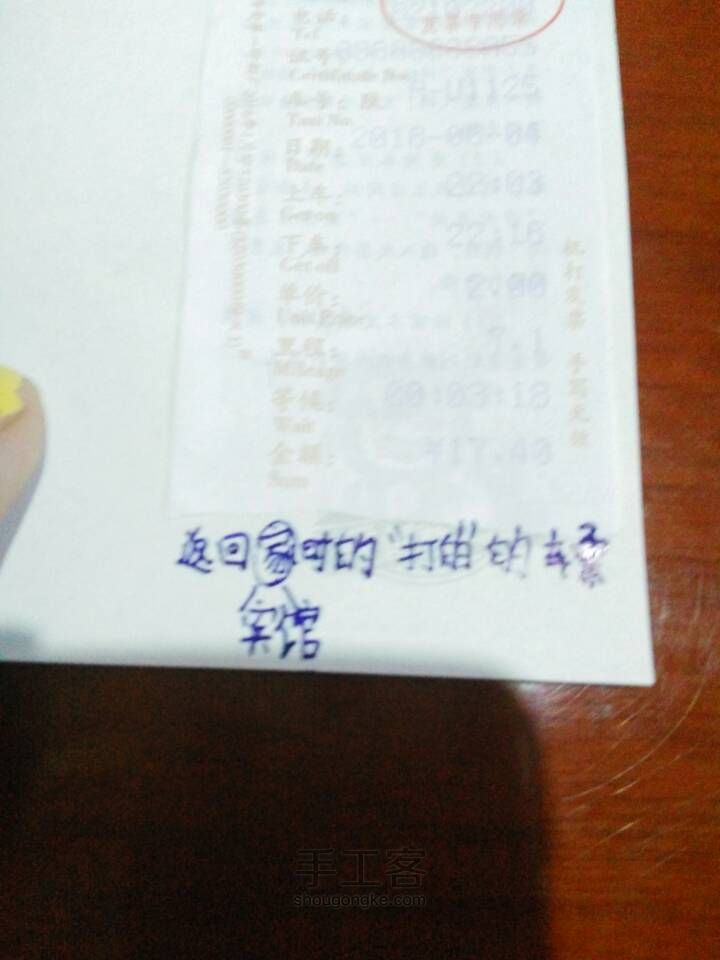 发票专用章
电话：
Tel
证号：
Certificate No.
车号：
H-U1125
Taxi No.
日期：
2016-08-04
Date
上车：
22:03
Get on
下车：
22:16
Get off
单价：
2.00
Unit Price
里程：
7.1
Mileage
等候：
00:03:18
Wait
金额：
¥17.40
Sum
机打发票 手写无效
返回家时的"打的"的车票
宾馆
手工客
shougongke.com